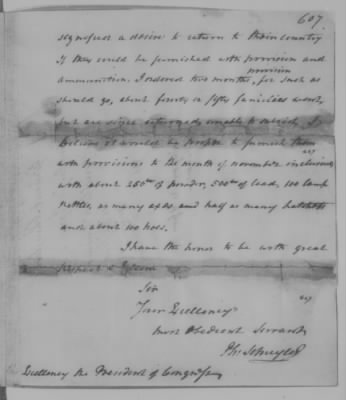 607
signified a desire to return to their Country
if they could be furnished with provision and
ammunition, I ordered two months provision, for such as
should go, about fourty or fifty families went,
but are since returned, unable to subsist, I
believe it would be proper to furnish them
with provisions to the month of november inclusively
with about 250 lb of powder, 500 lb of lead, 100 Camp
Kettles, as many axes and half as many hatchets
and about 100 hoes.
I have the honor to be with great
respect & Esteem
Sir
Your Excellency's
most Obedient Servant
Ph: Schuyler
Excellency the President of Congress